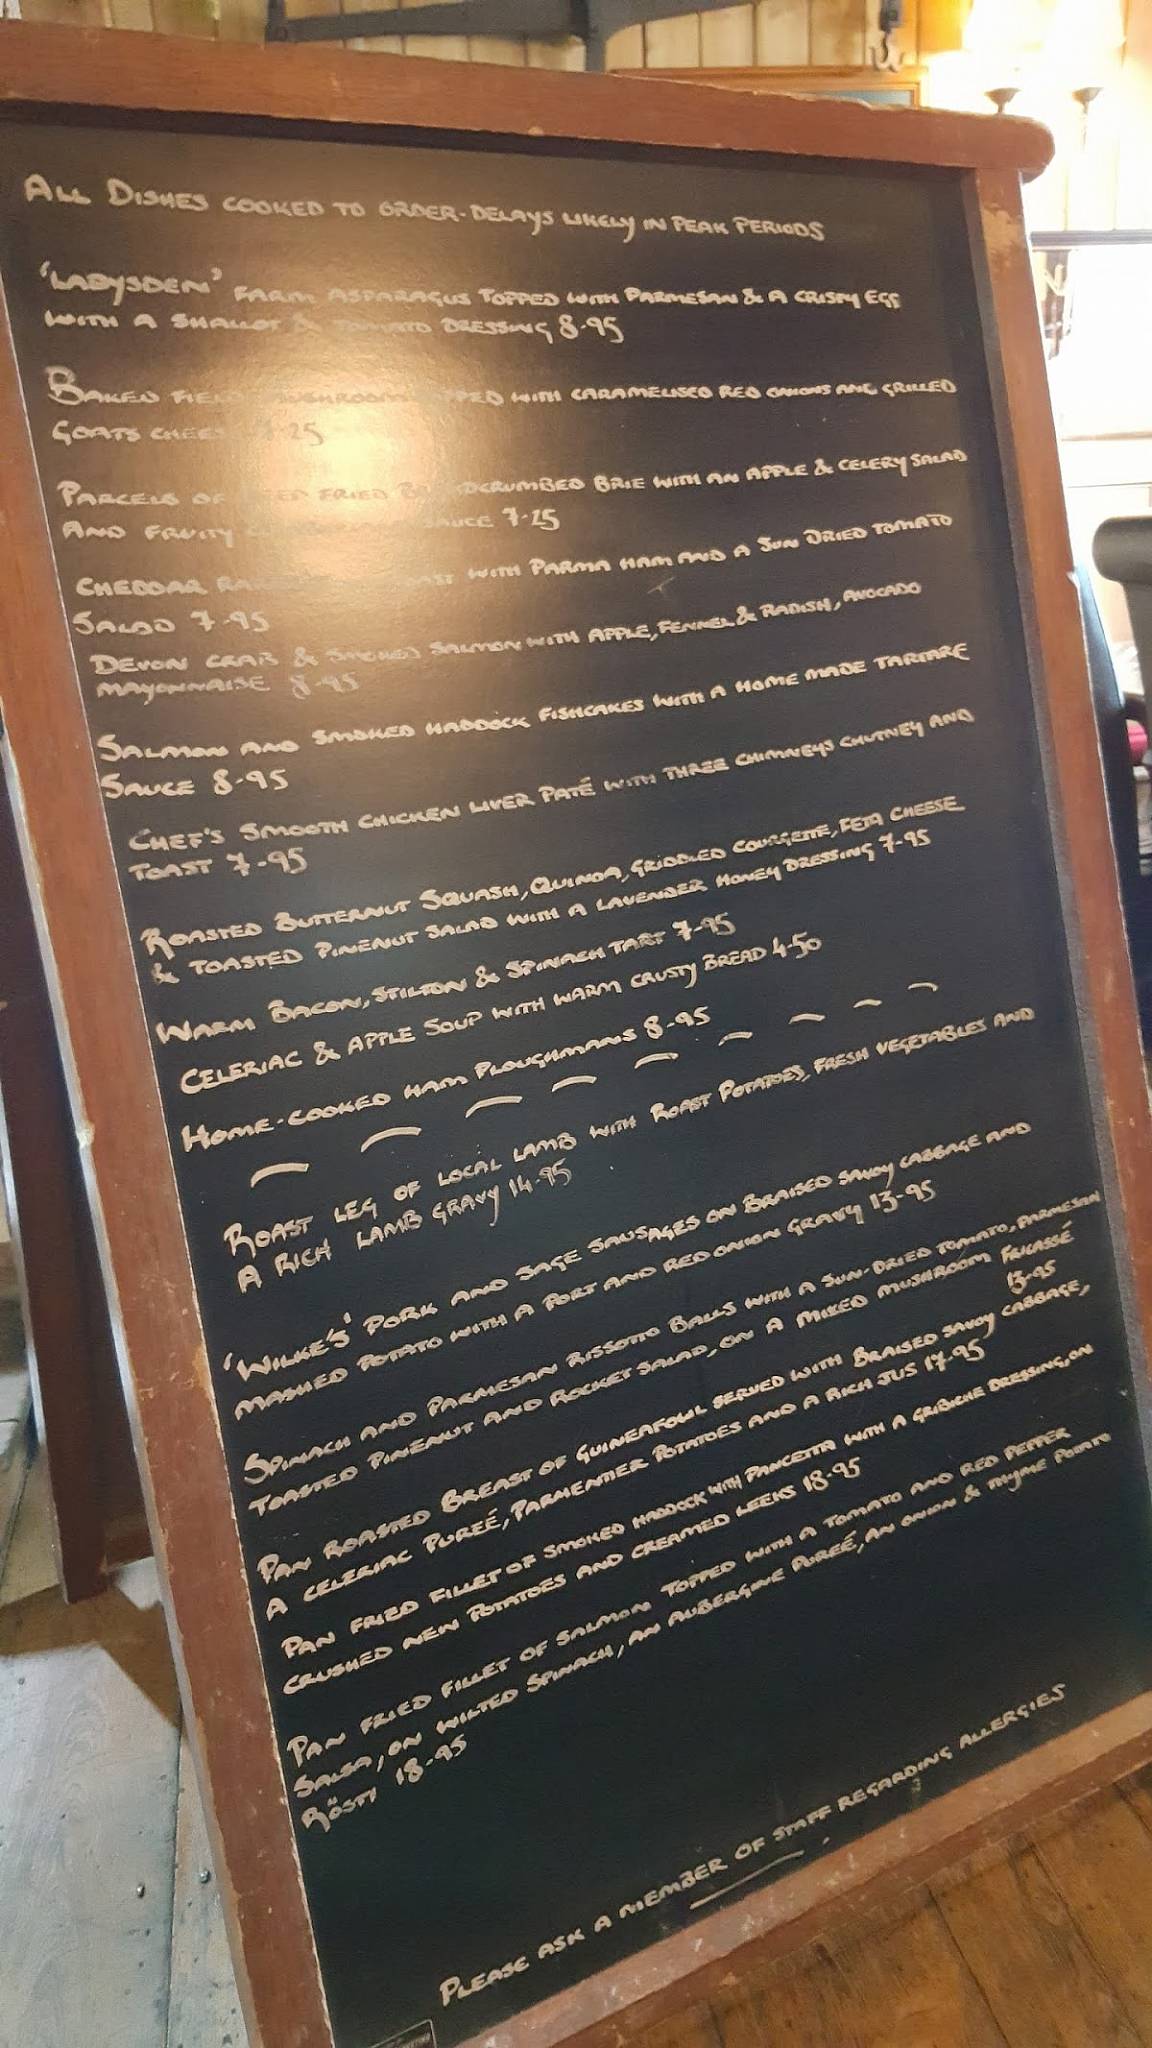 ALL DISHES COOKED TO ORDER-DELAYS LIKELY IN PEAK PERIODS
'LADYSDEN' FARM ASPARAGUS TOPPED WITH PARMESAN & A CRISPY EGG
WITH A SHALLOT & TOMATO DRESSING 8-95
BAKED FIELD MUSHROOM TOPPED WITH CARAMELISED RED ONIONS AND GRILLED
GOATS CHEESE 7-25
PARCELS OF DEEP FRIED BREADCRUMBED BRIE WITH AN APPLE & CELERY SALAD
AND FRUITY SAUCE 7-25
CHEDDAR WITH PARMA HAM AND A SUN DRIED TOMATO
SALAD 7-95
DEVON CRAB & SMOKED SALMON WITH APPLE, FENNEL & RADISH, AVOCADO
MAYONNAISE 8-95
SALMON AND SMOKED HADDOCK FISHCAKES WITH A HOME MADE TARTARE
SAUCE 8-95
CHEF'S SMOOTH CHICKEN LIVER PATÉ WITH THREE CHIMNEYS CHUTNEY AND
TOAST 7-95
ROASTED BUTTERNUT SQUASH, QUINOA, GRIDDLED COURGETTE, FETA CHEESE
& TOASTED PINENUT SALAD WITH A LAVENDER HONEY DRESSING 7-95
WARM BACON, STILTON & SPINACH TART 7-95
CELERIAC & APPLE SOUP WITH WARM CRUSTY BREAD 4-50
HOME-COOKED HAM PLOUGHMANS 8-95
ROAST LEG OF LOCAL LAMB WITH ROAST POTATOES, FRESH VEGETABLES AND
A RICH LAMB GRAVY 14-95
'WILKE'S' PORK AND SAGE SAUSAGES ON BRAISED SAVOY CABBAGE AND
MASHED POTATO WITH A PORT AND RED ONION GRAVY 13-95
SPINACH AND PARMESAN RISSOTTO BALLS WITH A SUN-DRIED TOMATO, PARMESAN
TOASTED PINENUT AND ROCKET SALAD, ON A MIXED MUSHROOM FRICASSÉ
13-95
PAN ROASTED BREAST OF GUINEAFOWL SERVED WITH BRAISED SAVOY CABBAGE,
A CELERIAC PUREÉ, PARMENTIER POTATOES AND A RICH JUS 17-95
PAN FRIED FILLET OF SMOKED HADDOCK WITH PANCETTA WITH A GRIBICHE DRESSING, ON
CRUSHED NEW POTATOES AND CREAMED LEEKS 18-95
PAN FRIED FILLET OF SALMON TOPPED WITH A TOMATO AND RED PEPPER
SALSA, ON WILTED SPINACH, AN AUBERGINE PUREÉ, AN ONION & THYME POTATO
RÖSTI 18-95
PLEASE ASK A MEMBER OF STAFF REGARDING ALLERGIES